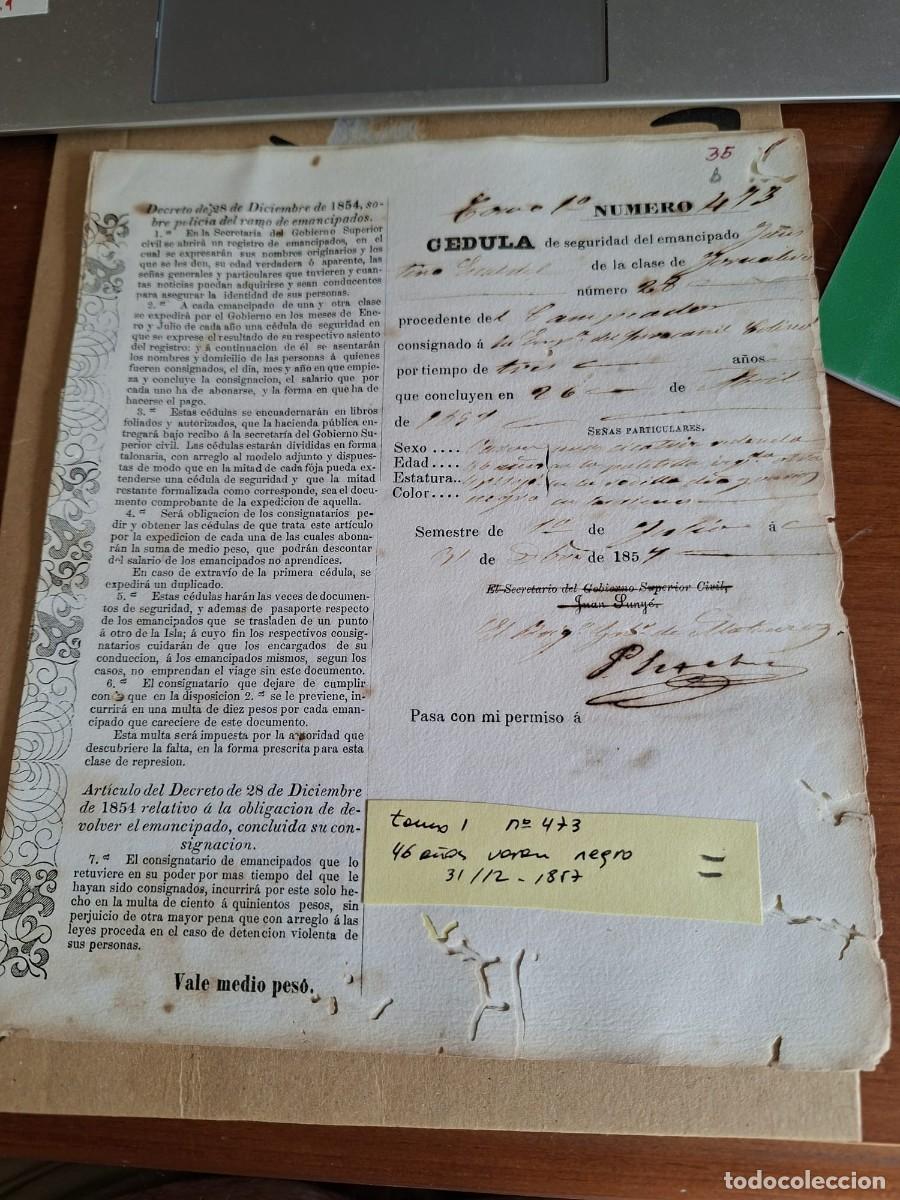 35
Decreto de 28 de Diciembre de 1854, so-
bre policia del ramo de emancipados.
1. ª En la Secretaría del Gobierno Superior
civil se abrirá un registro de emancipados, en el
cual se expresarán sus nombres originarios y los
que se les den, su edad verdadera ó aparente, las
señas generales y particulares que tuvieren y cuan-
tas noticias puedan adquirirse y sean conducentes
para asegurar la identidad de sus personas.
2. ª A cada emancipado de una y otra clase
se expedirá por el Gobierno en los meses de Ene-
ro y Julio de cada año una cédula de seguridad en
que se exprese el resultado de su respectivo asiento
del registro: y á continuacion de él se asentarán
los nombres y domicilio de las personas á quienes
fueren consignados, el dia, mes y año en que empie-
za y concluye la consignacion, el salario que por
cada uno ha de abonarse, y la forma en que ha de
hacerse el pago.
3. ª Estas cédulas se encuadernarán en libros
foliados y autorizados, que la hacienda pública en-
tregará bajo recibo á la secretaría del Gobierno Su-
perior civil. Las cédulas estarán divididas en forma
talonaria, con arreglo al modelo adjunto y dispues-
tas de modo que en la mitad de cada fója pueda ex-
tenderse una cédula de seguridad y que la mitad
restante formalizada como corresponde, sea el docu-
mento comprobante de la expedicion de aquella.
4. ª Será obligacion de los consignatarios pe-
dir y obtener las cédulas de que trata este artículo
por la expedicion de cada una de las cuales abona-
rán la suma de medio peso, que podrán descontar
del salario de los emancipados no aprendices.
En caso de extravío de la primera cédula, se
expedirá un duplicado.
5. ª Estas cédulas harán las veces de documen-
tos de seguridad, y ademas de pasaporte respecto
de los emancipados que se trasladen de un punto
á otro de la Isla; á cuyo fin los respectivos consig-
natarios cuidarán de que los encargados de su
conduccion, á los emancipados mismos, segun los
casos, no emprendan el viage sin este documento.
6. ª El consignatario que dejare de cumplir
con que en la disposicion 2. ª se le previene, in-
currirá en una multa de diez pesos por cada eman-
cipado que careciere de este documento.
Esta multa será impuesta por la autoridad que
descubriere la falta, en la forma prescrita para esta
clase de represion.
Artículo del Decreto de 28 de Diciembre
de 1854 relativo á la obligacion de de-
volver el emancipado, concluida su con-
signacion.
7. ª El consignatario de emancipados que lo
retuviere en su poder por mas tiempo del que le
hayan sido consignados, incurrirá por este solo he-
cho en la multa de ciento á quinientos pesos, sin
perjuicio de otra mayor pena que con arreglo á las
leyes proceda en el caso de detencion violenta de
sus personas.
Vale medio peso.
Tomo 1º NUMERO 473
CEDULA de seguridad del emancipado
de la clase de
número 28
procedente del
consignado á
por tiempo de tres años
que concluyen en 26 de Abril
de
SEÑAS PARTICULARES.
Sexo ....
Edad .... 46 años
Estatura..
Color.... negro
Semestre de 1º de Julio á
31 de de 1857
El Secretario del Gobierno Superior Civil,
Juan Sunyé.
Pasa con mi permiso á
tomo 1 nº 473
46 años varon negro
31/12 - 1857
todocoleccion